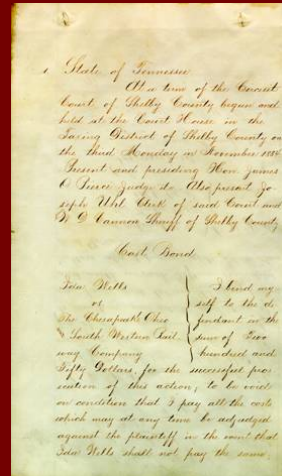 1. State of Tennessee
At a time of the Circuit
Court of Shelby County begun and
held at the Court House in the
Taxing District of Shelby County on
the third Monday in November 1884
Present and presiding Hon. James
O Pierce Judge &c. Also present Jo-
seph Uhl Clerk of said Court and
W D Cannon Sheriff of Shelby County
Cost Bond
Ida Wells
vs
The Chesapeake Ohio
& South Western Rail
way Company
I bind my
self to the de
fendant in the
sum of Two
hundred and
Fifty Dollars, for the successful pros
ecution of this action, to be void
on condition that I pay all the costs
which may at any time be adjudged
against the plaintiff in the event that
Ida Wells shall not pay the same.